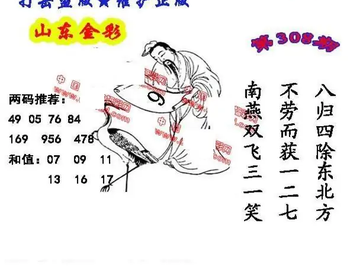 打击盗版 维护正版
山东金彩
第308期
两码推荐：
49 05 76 84
169 956 478
和值：07 09 11
13 16 17
9
八归四除东北方
不劳而获一二七
南燕双飞三一笑